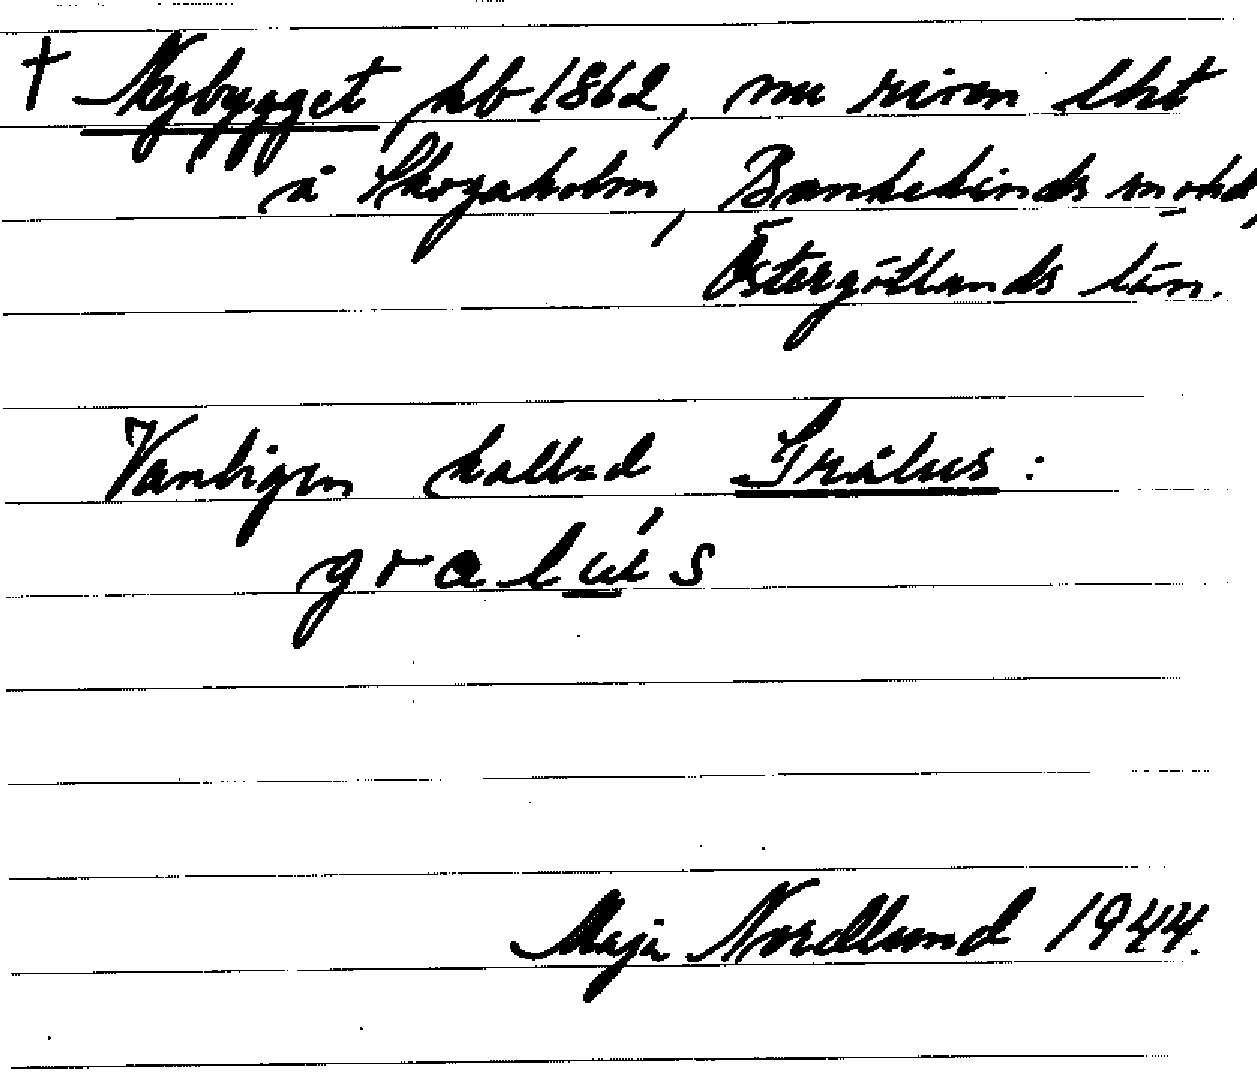 † Nybygget kb 1862, nu riven lht
å Skogaholm, Bankekinds sn o hd,
Östergötlands län.
Vanligen kallad Grålus:
gralu's
Maja Nordlund 1944.